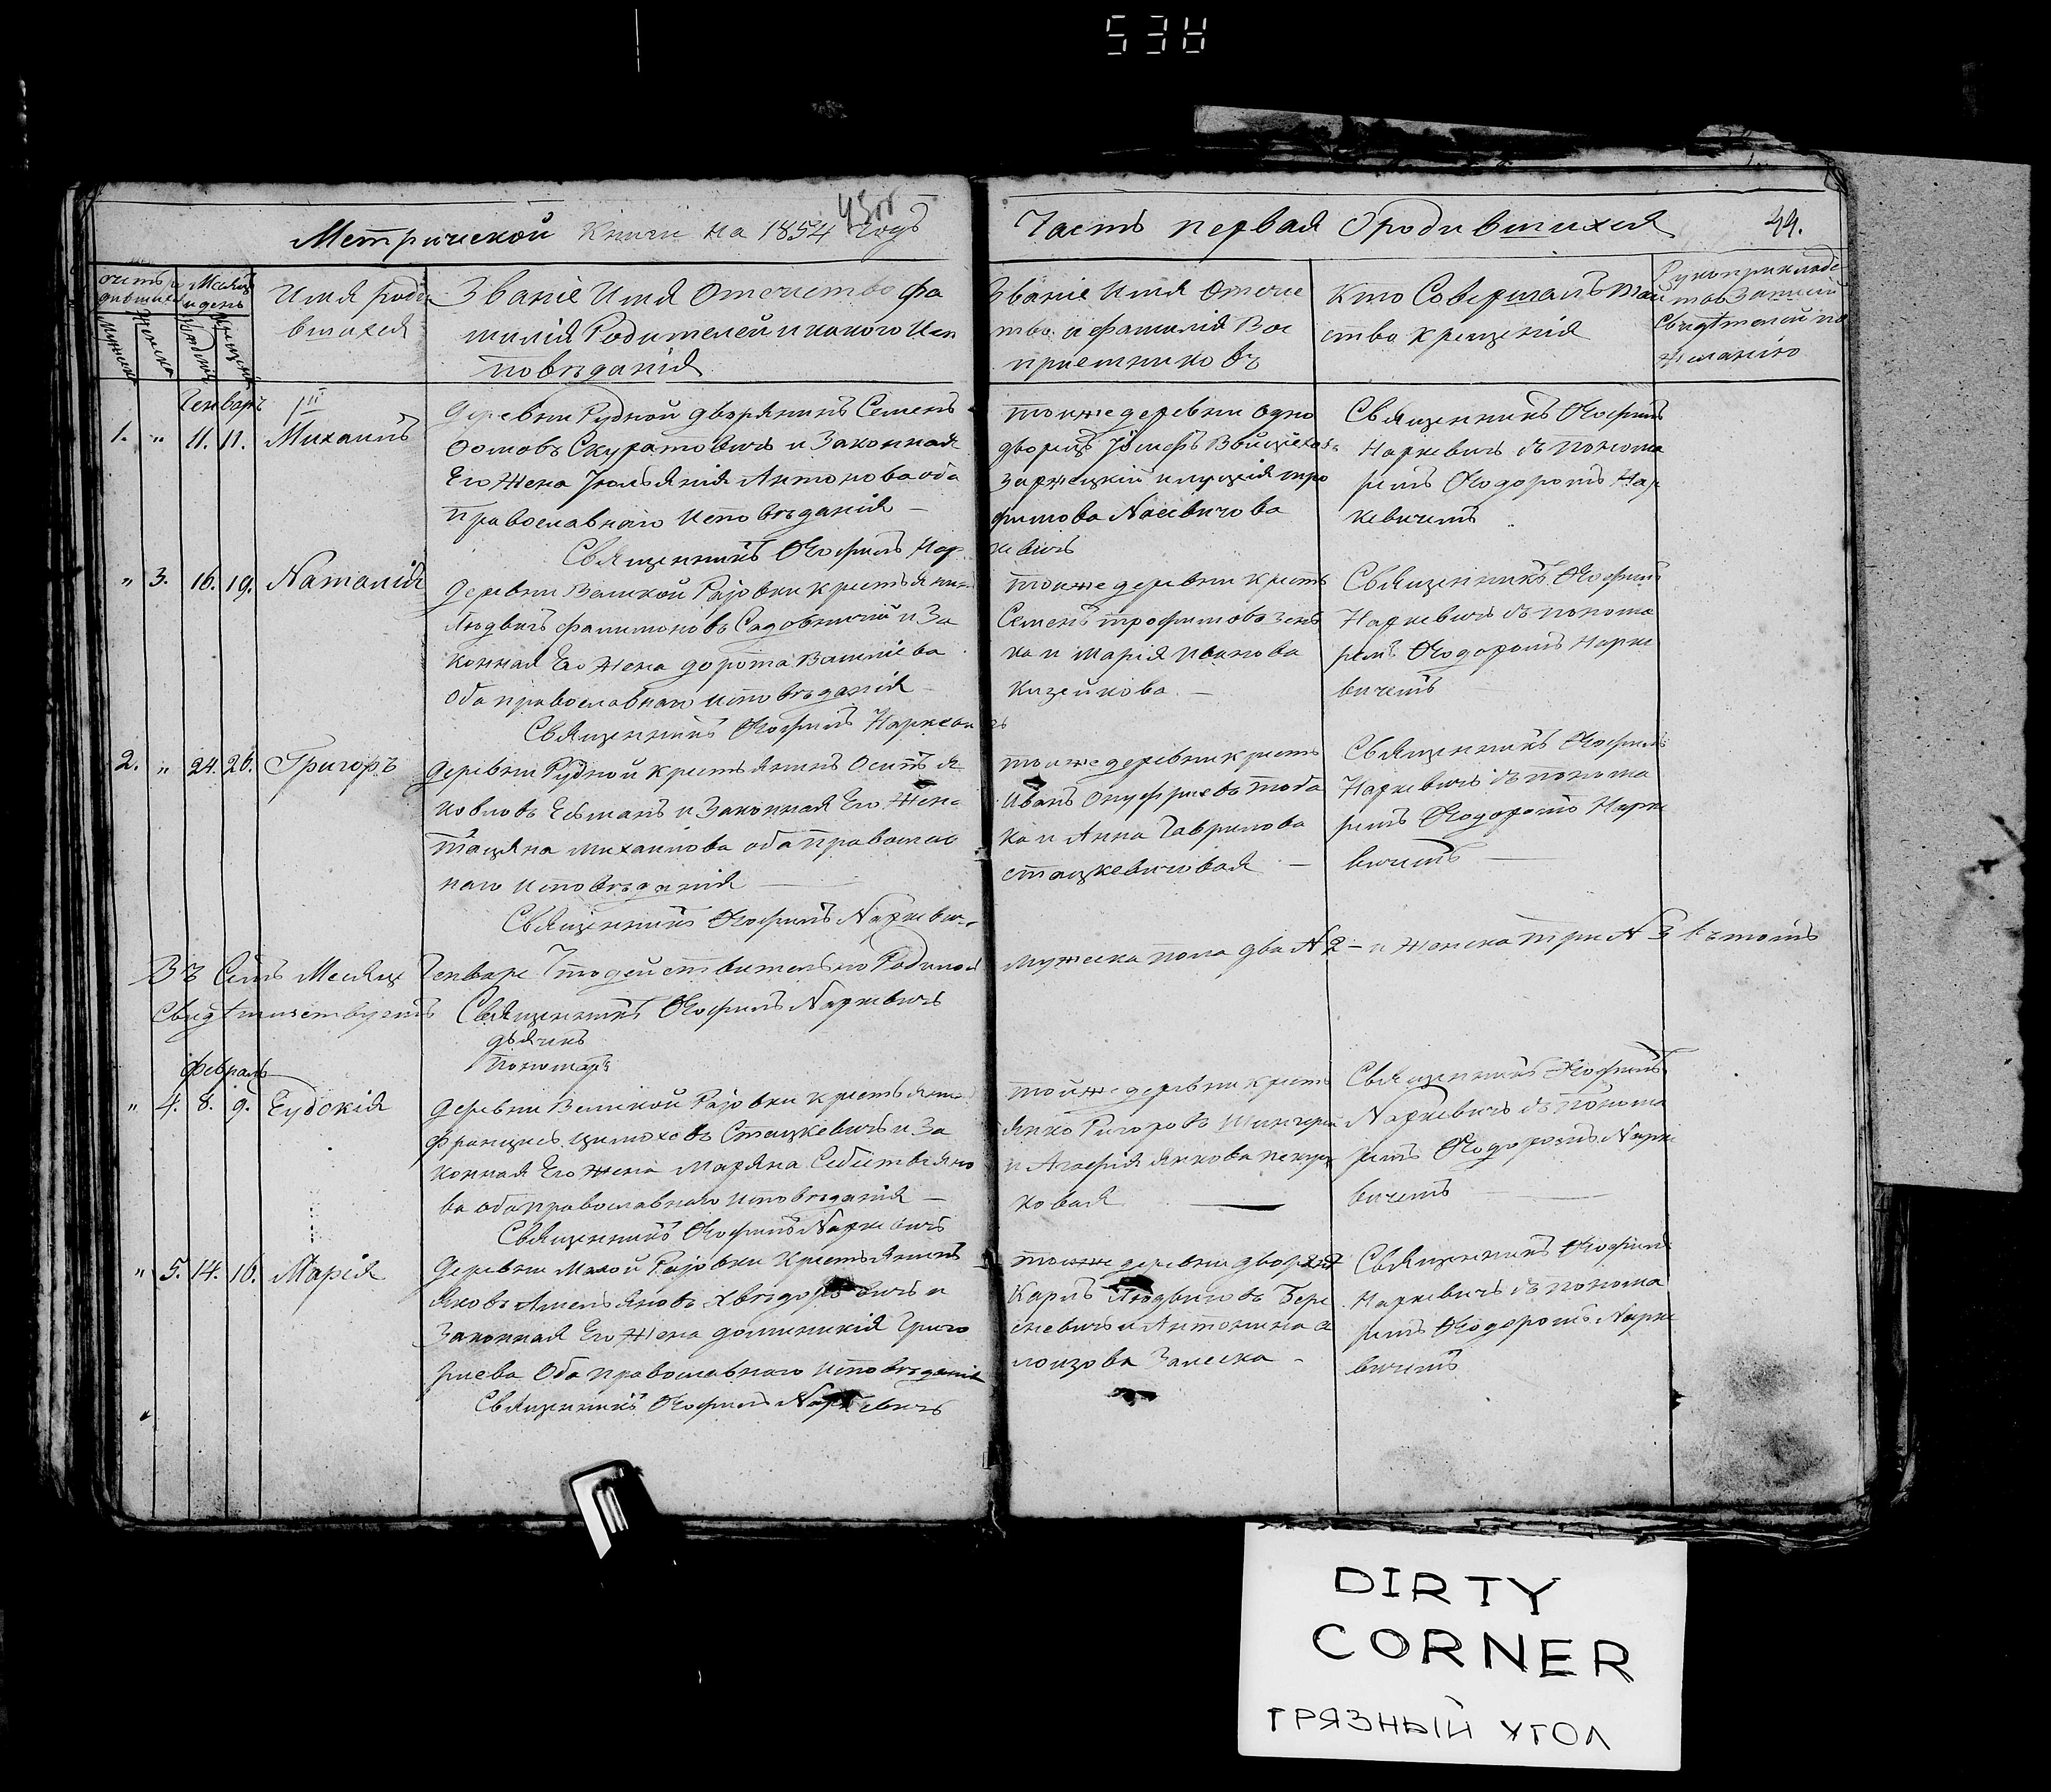 538
43об
Метрической Книги на 1854 годъ
Часть первая О родившихся
44.
Месяцъ и день
Имя роди
вшихся
Званіе Имя Отечество Фа
милія Родителей и какого Исп
повѣданія
Званіе Имя Отече
тво и фамилія Вос
приемниковъ
Кто Совершалъ таи
ство крещенія
Рукоприкладс
тво Записи
Свидѣтелей по
желанію
Генваръ
1. " 11. 11. Михаилъ
деревни Рудной дворянинъ Семенъ
Осиповъ Скуратовичъ и Законная
Его Жена Іюльянія Антонова оба
православнаго Исповѣданія —
Священникъ Теофилъ Нар
тоиже деревни одно
дворецъ Іосифъ Войцехов
Заржецкій и луція тро
фимова Насевичова
кевичъ
Священникъ Теофилъ
Наркевичъ съ понома
ремъ Теодоромъ Нар
кевичемъ
" 3. 16. 19. Наталія
деревни Великой Раіовки крестьянин
Людвигъ Филимоновъ Садовничій и За
конная Его Жена дорота Василіева
оба православнаго исповѣданія
Священникъ Теофилъ Наркеви
тоиже деревни крест
Семенъ трофимовъ Зень
ка и Марія Иванова
Казейкова —
чъ
Священникъ Теофилъ
Наркевичъ съ понома
ремъ Теодоромъ Нарке
вичемъ
2. " 24. 26. Григоръ
деревни Рудной крестьянинъ Осипъ Я
ковлевъ Есьманъ и Законная Его Жена
тацяна Михаилова оба православ
наго исповѣданія —
Священникъ Теофилъ Наркевич
тоиже деревни крест
Иванъ Онуфріевъ
ка и Анна Гаврилова
стацкевичовая —
Священникъ Теофилъ
Наркевичъ съ понома
ремъ Теодоромъ Нарке
вичемъ —
Въ Семъ Месяце Генваре Что действительно Родилось
мужеска пола два N 2 — и Женска три N 3 въ томъ
Свидѣтельствуемъ Священникъ Теофилъ Наркевичъ
дьячекъ
Пономаръ
Февраль
" 4. 8. 9. Еудокія
деревни Великой Раіовки крестьянин
францись Цимохевъ Стацкевичъ и За
конная Его Жена Марьяна Себестьяно
ва оба православнаго исповѣданія —
Священникъ Теофилъ Наркевичъ
тойже деревни крест
Янко Ригоровъ
и Агафія Янкова
ковая —
Священникъ Теофилъ
Наркевичъ съ понома
ремъ Теодоромъ Нарке
вичемъ —
" 5. 14. 16. Марія
деревни Малой Раіовки Крестьянинъ
Яковъ Амельяновъ Хвѣдоровичъ и
Законная Его Жена доминикія Григо
риева Оба православнаго исповѣданія
Священникъ Теофилъ Наркевичъ
тоиже деревни дворян
Карлъ Людвиговъ Бере
сневичъ и Антонина а
лоизова Залеска -
Священникъ Теофилъ
Наркевичъ съ понома
ремъ Теодоромъ Нарке
вичемъ
DIRTY
CORNER
ГРЯЗНЫЙ УГОЛ